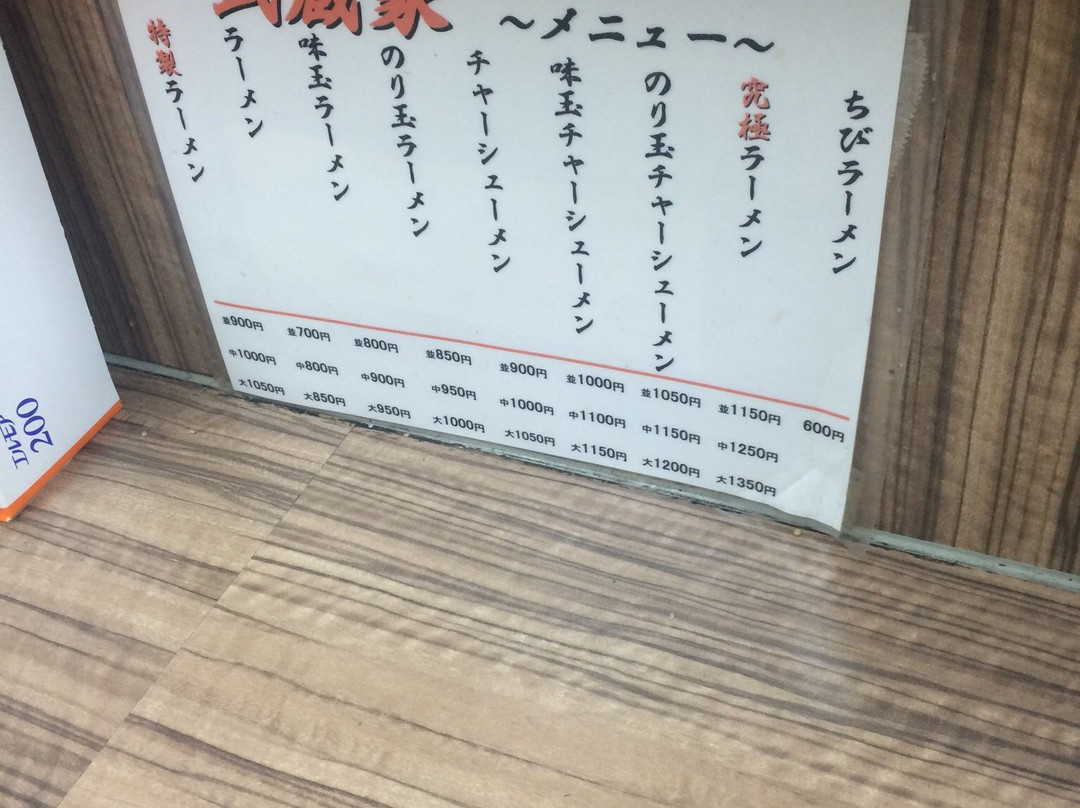 武蔵家
〜メニュー〜
特製ラーメン
ラーメン
味玉ラーメン
のり玉ラーメン
チャーシューメン
味玉チャーシューメン
のり玉チャーシューメン
究極ラーメン
ちびラーメン
並900円 並700円 並800円 並850円 並900円 並1000円 並1050円 並1150円 600円
中1000円 中800円 中900円 中950円 中1000円 中1100円 中1150円 中1250円
大1050円 大850円 大950円 大1000円 大1050円 大1150円 大1200円 大1350円
エルモア
200